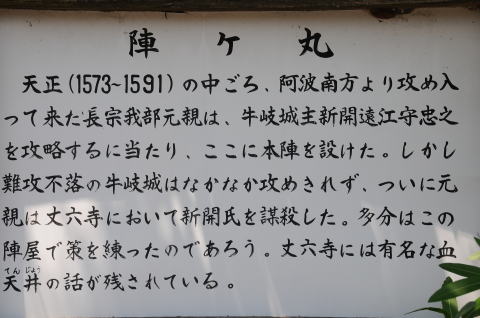 陣ケ丸
天正(1573~1591)の中ごろ、阿波南方より攻め入
って来た長宗我部元親は、牛岐城主新開遠江守忠之
を攻略するに当たり、ここに本陣を設けた。しかし
難攻不落の牛岐城はなかなか攻めきれず、ついに元
親は丈六寺において新開氏を謀殺した。多分はこの
陣屋で策を練ったのであろう。丈六寺には有名な血
てんじょう
天井の話が残されている。